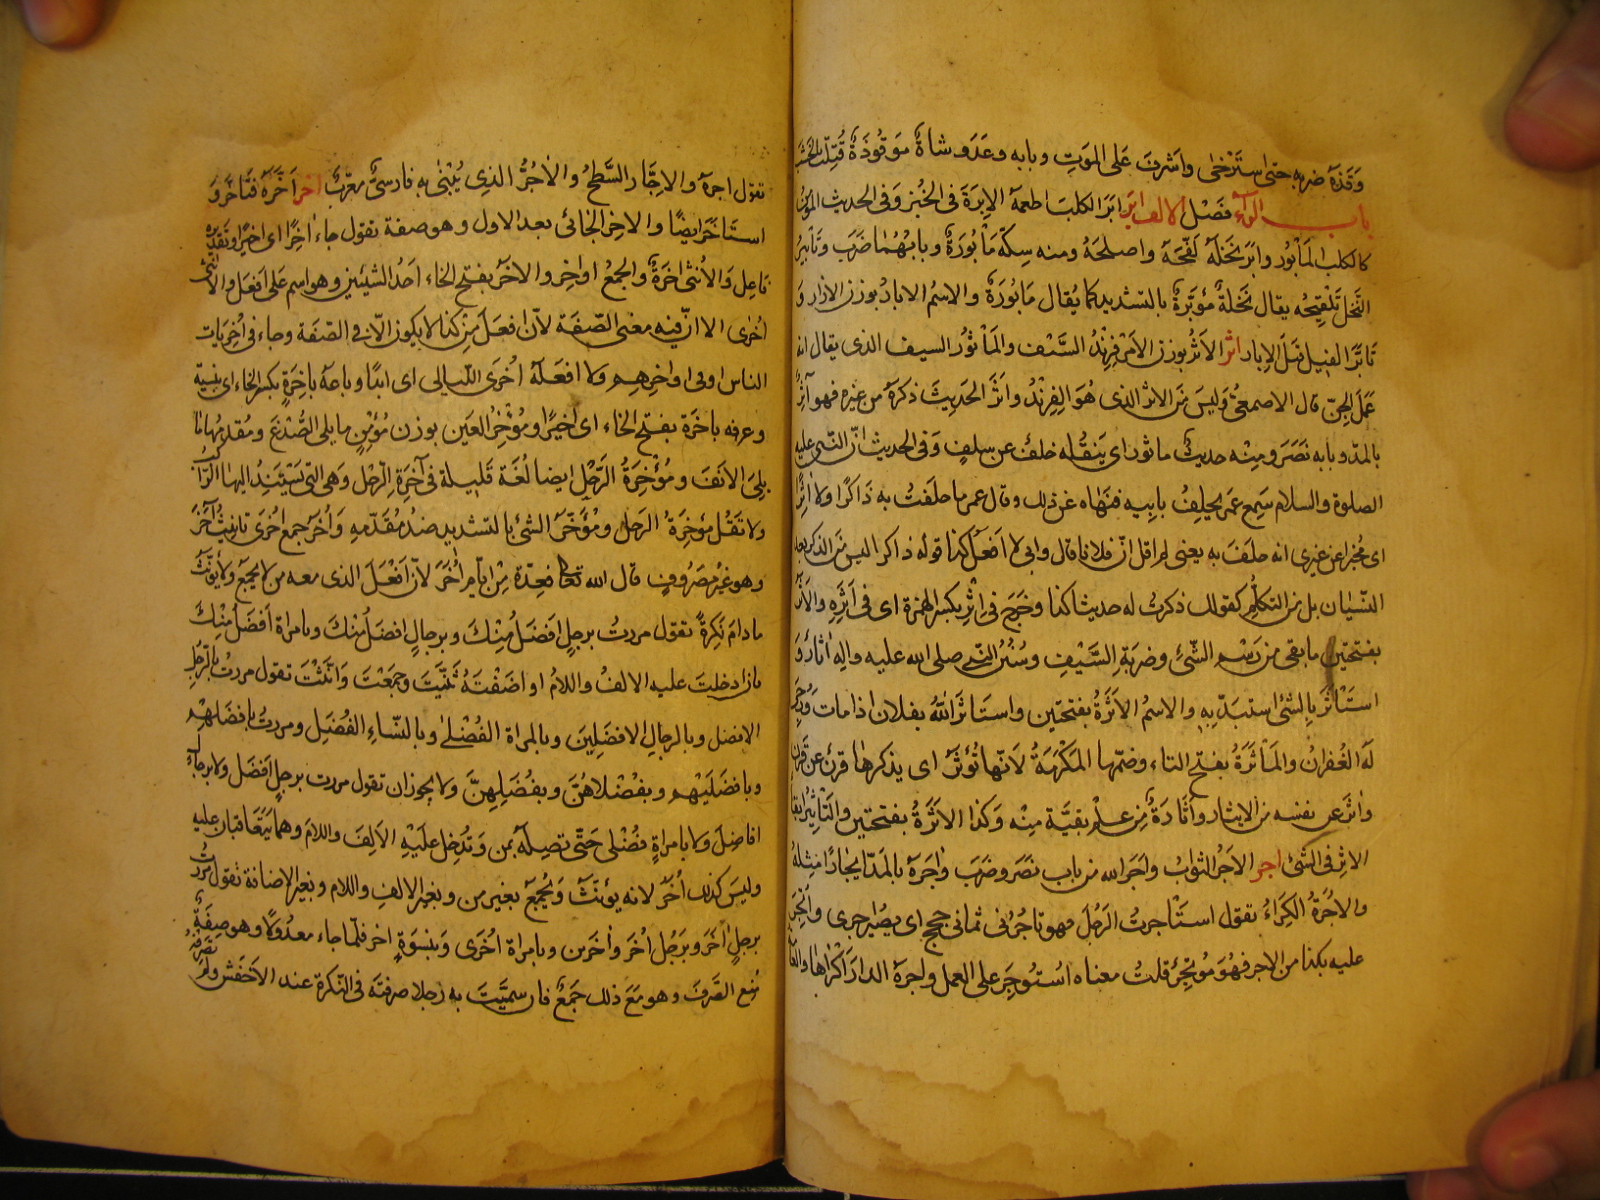 وَقَذَه ضربه حتى استَرْخى واَشرفَ عَلى الموَتِ وبابه وعَدَ وشاةٌ مَوَقُوذَةٌ قُتِلَت بالخَشَبِ
باب الرآء فصْل الالف ابَرَ ابَرَ الكلبَ اطعمهٓ الاِبرَةَ فى الخُبْز وَفى الحديث المؤمن
كالكلب المأبُور وابَرَ نَخلَهٓ لَقَّحهٓ واصلحهٓ ومنه سِكّةٌ مَأبُورَةٌ وبابهُمٰا ضَرَبَ وتَأبِيرُ
النّخل تَلْقِيحُه يقال نَخلةٌ مُؤَبَّرةٌ بالتشديد كما يُقال مَابُورَةٌ والاسمُ الابارُ بوزن الازار وَ
تَأبَّرَ الفَسِيل قبلَ الاِبار اثر الاَثْرُ بوزن الاَمْر فِرِنْدُ السَّيْف والمَأثُورُ السيف الذى يقال انه
عَمَل الجِنّ قال الاصمعىُّ وَليسَ مِنَ الاثر الذى هُوَ الفِرِنْدُ واَثَرَ الحَدِيثَ ذكرَهٓ عن غيره فهو آثِرٌ
بالمدّ وبابه نَصَرَ ومِنْه حديثٌ ماثور اى يَنقُله خلفٌ عن سلفٍ وَفى الحديث انّ النّبى عليه
الصلوة والسلام سَمِع عمر يحلِفُ بابِيه فنهَاه عَن ذلك وقال عمر ما حلَفتُ به ذَاكرًا ولا اثِرًا
اى مُخبِرا عن غيرى انه حلَفَ به يعنى لم اقل انّ فلانا قال وابى لا افعلُ كذا قوله ذاكرا ليس من الذكر بعد
النّسْيان بل من التكلّم كقولك ذكرتُ له حديث كذا وخَرج فى اِثْرِه بكسر الهمزة اى فى اَثَرِه والاَثَرُ
بفتحتين ما بقى من رَسْم الشّئِ وضربَةِ السَّيْفِ وسُنَنُ النّبى صلى الله عليه واله اٰثارُه وَ
استَأثَرَ بالشّئ استبَدَّ بِه والاسمُ الاَثَرَةُ بفتحتين واستاثَرَ اللهُ بفلان اذا مات وَرُجِىَ
لَهٓ الغُفرانُ والمَأثَرَةُ بفتح التاء وضمّها المَكْرمَةُ لاَنّها تُؤثَرُ اى يذكرها قرنٌ عن قَرنٍ
واٰثرَ على نفسه من الايثار واَثَارَةٌ من علْم بقيَّة مِنْه وَكذا الاَثَرَةُ بفتحتين والتَأثِيرُ ابقاءُ
الاثر فى الشّئ اجر الاَجْرُ الثوابُ وَاَجَرَ الله من باب نَصَرَ وضَرَبَ واٰجَرَهٓ بالمَدّ ايجارًا مِثلهُ
والاُجْرَةُ الكِرَاءُ تقول استَأجرتُ الرّجُلَ فهو تاجُرُنى ثمانى حِجج اى يصيْر اجرى وأتجر
عليه بكذا من الاجر فهُوَ مُؤتجِرٌ قلتُ معناه اُستُوجِرَ على العمل واجرهٓ الدارَ اَكْراها والعامة
تقول اجرهٓ والاِجَّار السَّطْحُ والاٰجُرُّ الذى يُبْنىٰ به فارسىٌّ معرّبٌ اخر اَخَّرَهٓ فتَاَخَّرَ وَ
استَاخَرَ ايضًا والاخِر الجَائى بعد الاول وهو صفة تقول جاء اٰخِرًا اى اخيرًا وتقديره
فاعِل وَالاُنثى اٰخِرَةٌ والجمعُ اواخِر والاخَرُ بفتح الخاء احدُ الشيئين وهو اسم على اَفعَل والانثى
اُخرٰى الا انّ فيه معنى الصّفة لاَنّ افعَلَ من كذا لا يكون الّا فى الصّفَة وجاء فى اُخرَيات
الناس اى فى اواخِرهِم ولا افعَلهٓ اُخرَى اللّيالى اى ابدًا وباعهٓ باَخِرَةٍ بكسر الخاء اى بنسِيَة
وعرفه باخَرَة بفتح الخاء اى اخيرًا ومُؤخِرُ العَين بوزن مُؤمِن ما يلى الصُّدْغَ ومُقدِمُها ما
يلى الاَنفَ ومُؤخِرَةُ الرَّحْلِ ايضا لُغَة قَلِيلة فى آخِرَةِ الرّحْل وَهى التى يَسْتَنِدُ اليها الرّاكب
ولا تَقُلْ مؤخِرَةُ الرَحل ومُؤَخَّرُ الشئ بالتشديد ضدُ مُقَدَّمهِ وَاُخَر جمع اُخرَى تانيثُ آخَرَ
وهو غيرُ مَصرُوفٍ قال الله تعالى فعِدّة مِنْ ايّام اُخَرَ لاَنّ اَفْعَلَ الذى معه من لا يجمَع ولا يؤنّث
مادامَ نَكِرةً تقول مررتُ برجلٍ افضَلَ مِنْكَ وبرجالٍ افضَلَ منكَ وبامراة افضَلَ مِنْكَ
فان ادخلتَ عليه الالفَ واللامَ او اضَفْتَهُ ثَنَّيتَ وجمَعْتَ وَانَّثتَ تقول مررتُ بالرّجل
الافضل وبالرجالِ الافضَلِينَ وبالمراة الفُضْلىٰ وبالنّساءِ الفُضَلِ ومررتُ بافضَلهِم
وبافضَلِيْهِم وبفُضْلاهُنَّ وبفُضَلِهِنَّ ولا يجوز ان تقول مررت برجلٍ اَفضَل ولا برجالٍ
افاضِلَ ولا بامراةٍ فُضْلى حَتّى تصِلهُ بمن وَتُدخِل علَيْهِ الاَلفَ واللامَ وهما يَتعَاقبان عليه
وليس كذلك اُخَرُ لانه يؤنثُ وَيُجمَعُ بغير من وبغير الالفِ واللام وبغير الاضافة تقول مررتُ
برجلٍ اٰخرَ وبرجال اُخَرَ واٰخَرِين وبامراة اُخرَى وَبنسوَةٍ اخر فلمّا جاء معدُولًا وهو صِفَةٌ
مُنِع الصّرفَ وهو مَعَ ذلك جَمعٌ فان سمّيَتَ به رَجلا صرفتَه فى النّكرة عند الاَخفَش ولَم
تصرفهُ